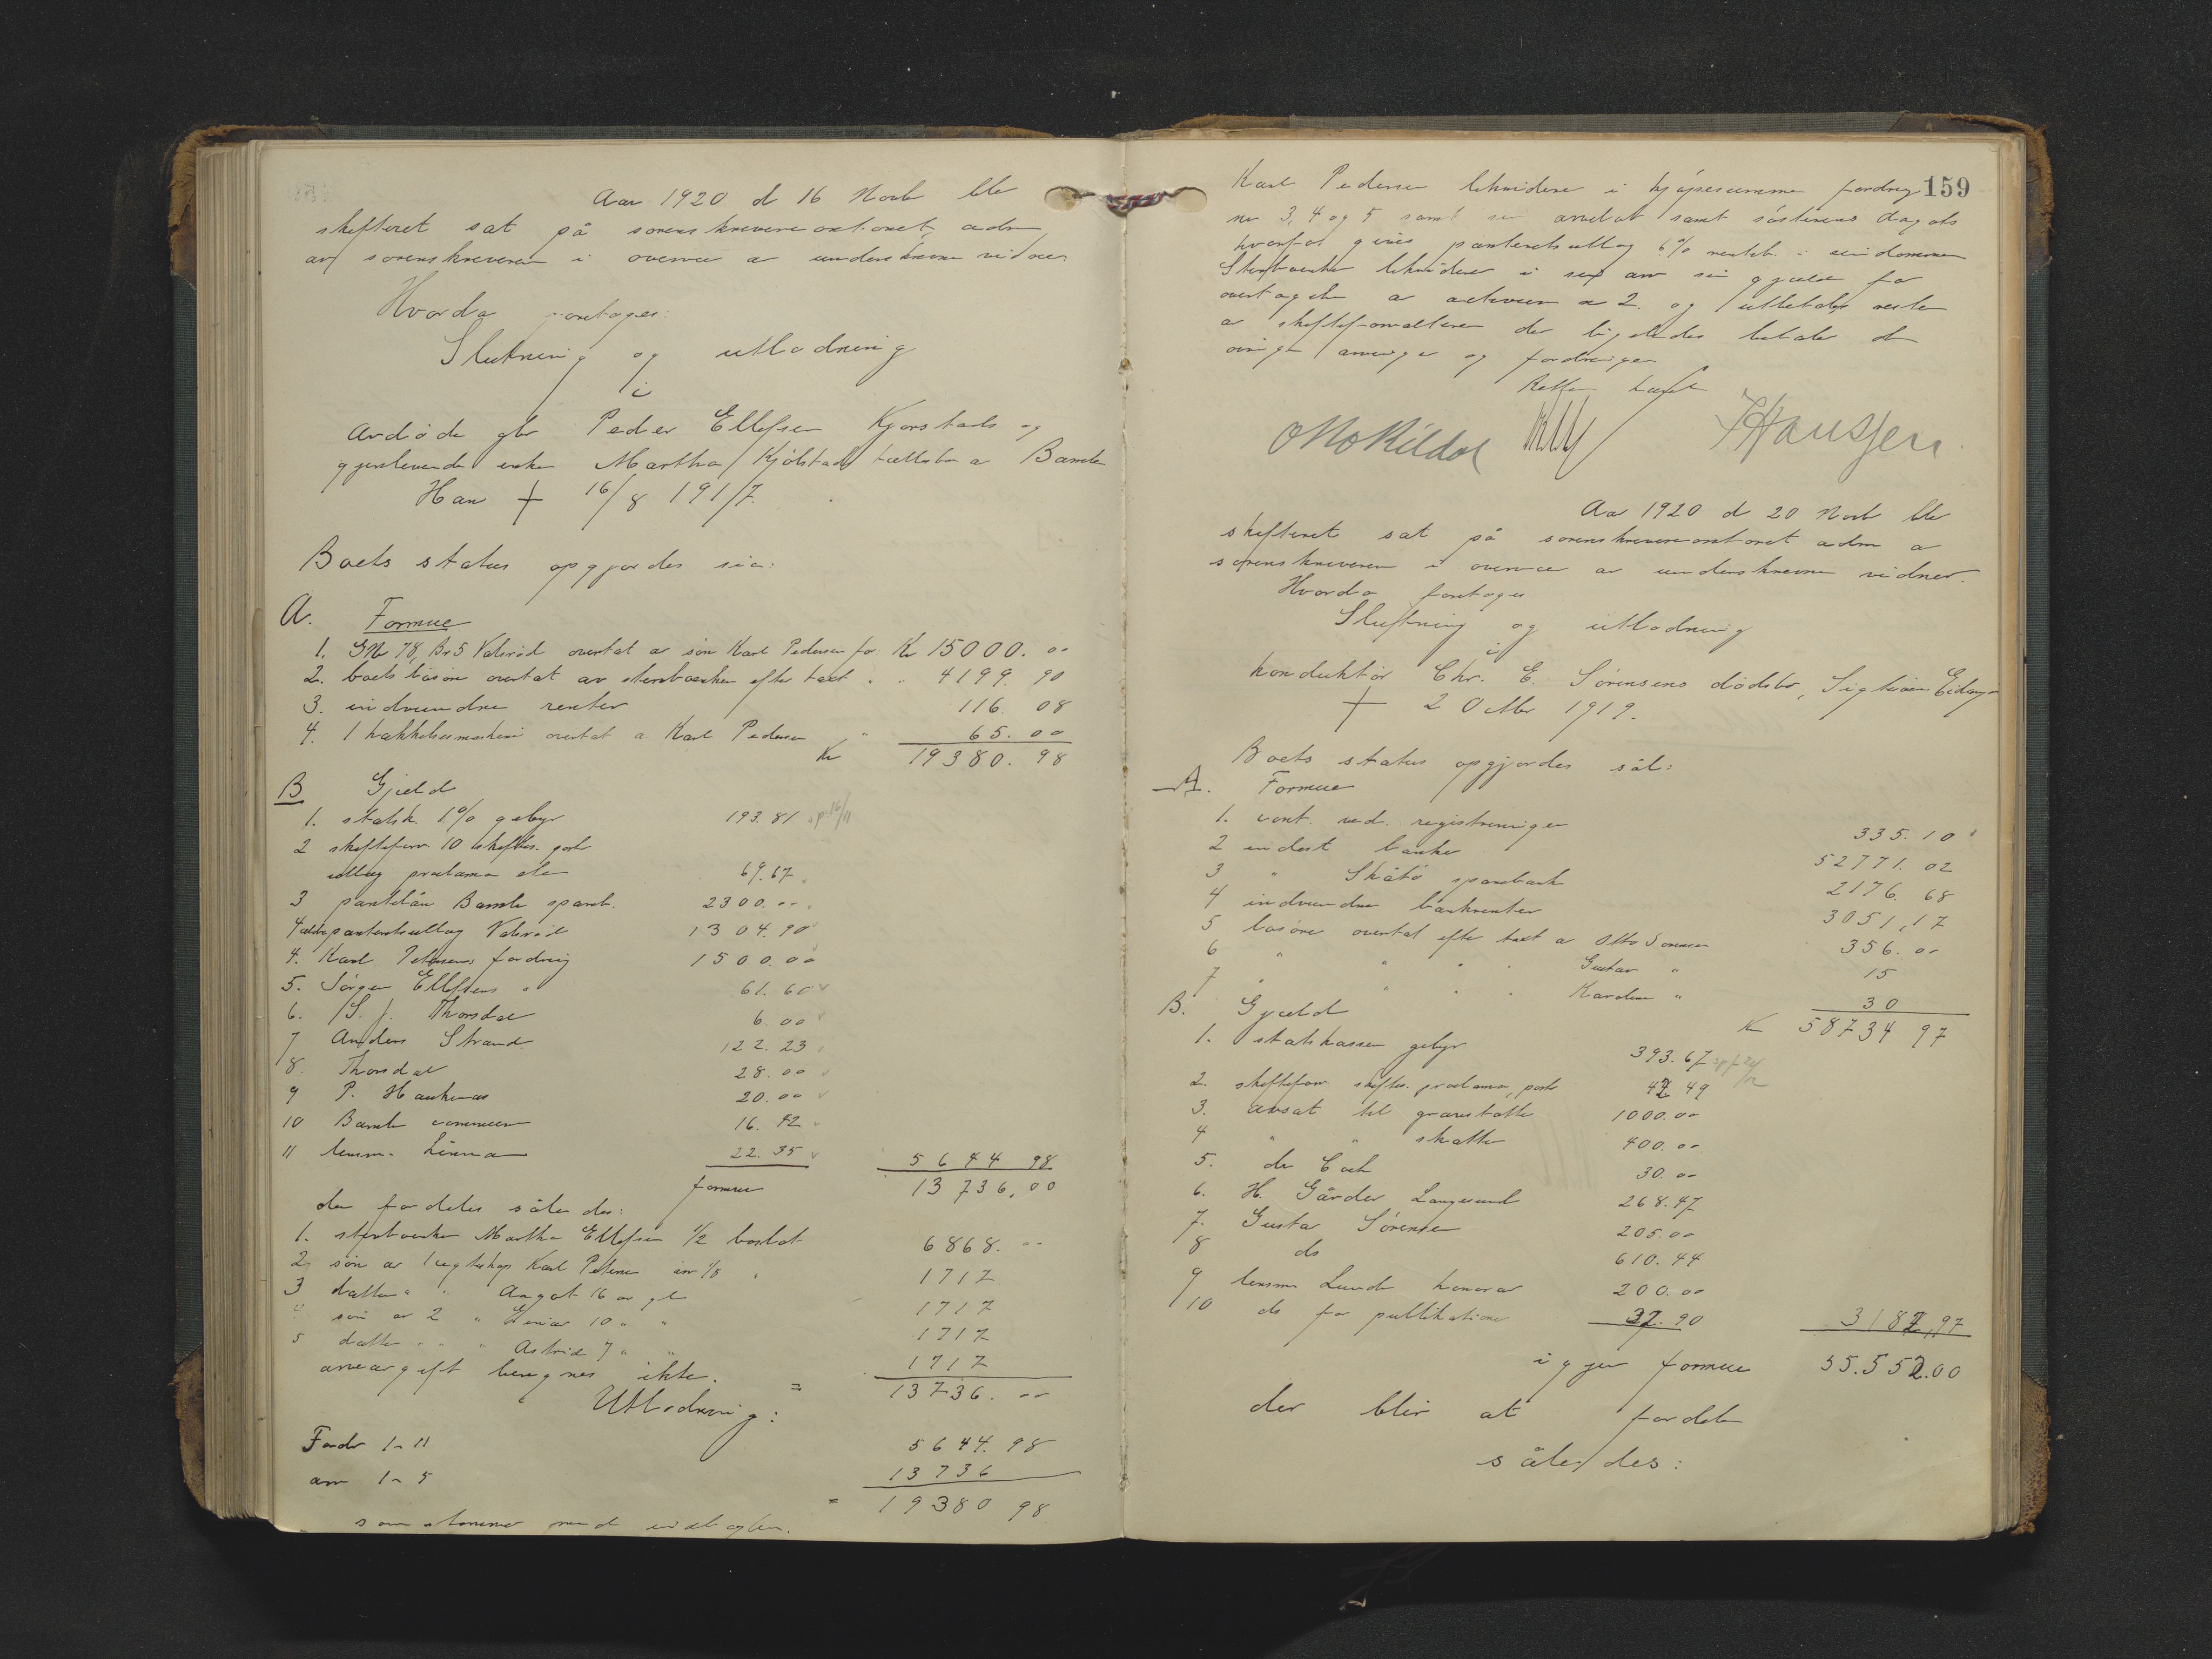 Aar 1920 d 16 Novb ble
skifteret sat på sorenskriverkontoret, adm
av sorenskriveren i overvær a underskrevne vidner
Hvorda foretoges:
Slutning og utlodning
i
avdøde gbr Peder Ellefsen Kjørstads og
gjenlevende enke Martha Kjølstads fællesbo a Bamle
Han † 16/8 1917.
Boets status opgjordes så:
A. Formue
1. GNo 78, Br 5 Valsrød overtat av søn Karl Pedersen for Kr 15000.00
2. boets løsøre overtat av stervboenken efter takt " " 4199.90
3. indvundne renter 116.08
4. 1 hakkelsesmaskine overtat a Karl Pedersen " 65.00
Kr 19380.98
B Gjæld
1. statsk. 1% gebyr 193.81 sp 16/11
2 skifteforv. 10 skiftes. porto
utlæg proclama etc 69.67
3 pantelån Bamle spareb. 2300.00
4 ældre panteretsutlæg Valsrød 1304.90
4. Karl Petersens fordring 1500.00
5. Jørgen Ellefsens " 61.60
6. S. J. Thorsdal 6.00
7 Anders Strand 122.23
8. Thorsdal 28.00
9 P. Haukenæs 20.00
10 Bamle commune 16.42
11 lensm. Linna 22.35 5644 98
formue 13736,00
der fordeles således:
1. stervboenken Martha Ellefsen 1/2 boslod 6868.00
2. søn av 1 ægteskap Karl Petersen arv 1/8 " 1717
3 datter " " Aagot 16 år gl 1717
4 søn av 2 " Einar 10 " " 1717
5 datter " " " Astrid 7 " " 1717
arveavgift beregnes ikke. = 13736.00
Utlodning:
Fordr 1-11 5644.98
arv 1-5 13736
= 19380 98
som stemmer med indtægten.
159
Karl Pedersen likviderer i kjøpesummen fordring
nr 3, 4 og 5 samt sin arvelod samt søsterens Aagots
hvorfor gives panteretsutlæg 6% rentb. i eiendommen
Stervboenken likviderer i sin arv sin gjæld for
overtagelsen a activum a 2. og utbetales resten
a skifteforvalteren der ligeledes betaler de
øvrige arvinger og fordringer
Retten hævet
Otto Rildal
JHanssen.
Aar 1920 d 20 Novb ble
skifteret sat på sorenskriverkontoret adm a
sorenskriveren i overvær av underskrevne vidner.
Hvorda foretoges
Slutning og utlodning
i
konduktør Chr. E. Sørensens dødsbo,
† 2 Octbr 1919.
Boets status opgjordes sål:
A. Formue
1. cont. ved. registreringen 335.10
2 indest banker 52771.02
3 " Skåtø sparebank 2176.68
4 indvundne bankrenter 3051,17
5 løsøre overtat efter takt a Otto Sørensen 356.00
6 " " " " Gustav " 15
7 " " " " Karoline " 30
Kr 58734 97
B. Gjæld
1. statskassen gebyr 393.67
2. skifteforv skiftes. proclama, porto 42 49
3. avsat til gravstøtte 1000.00
4 " " skatter 400.00
5. dr Coch 30.00
6. H. Gårder Langesund 268.47
7. Gustav Sørensen 205.00
8 do 610.44
9 lensm Lunde honorar 200.00
10 do for publikationer 32.90 3182,97
igjen formue 55.552.00
der blir at fordele
således: